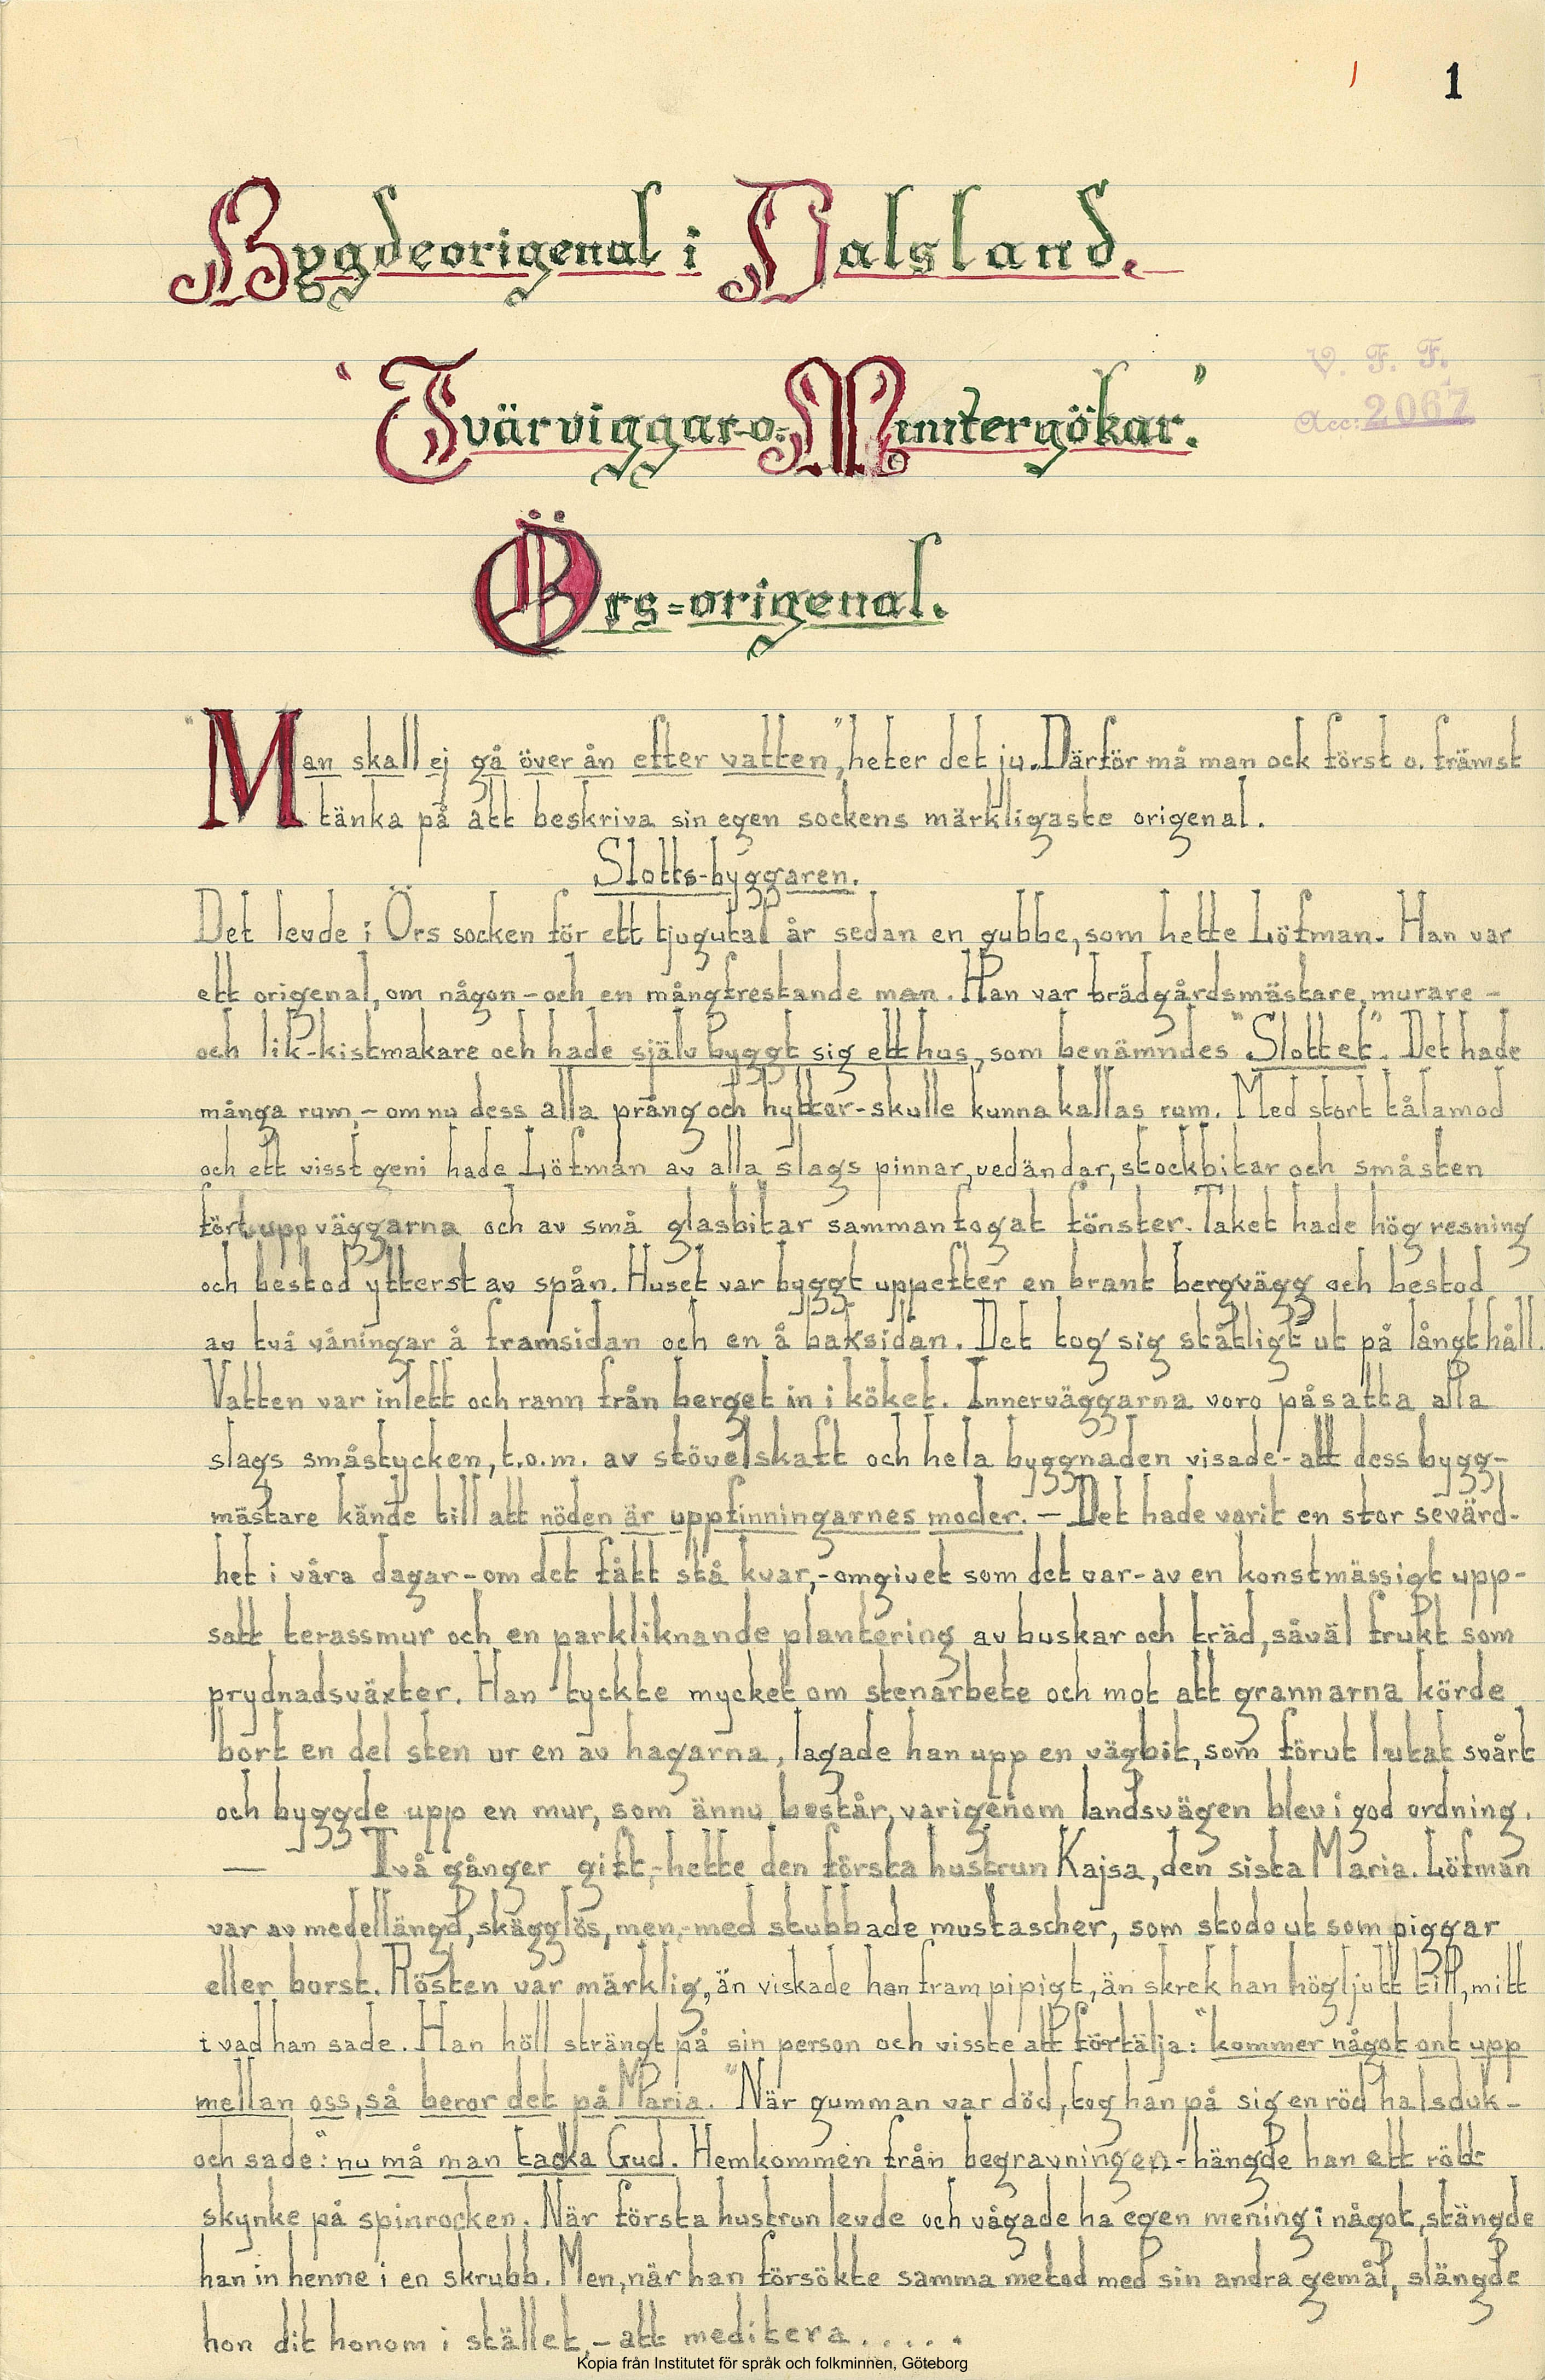 1
Bygdeorigenal i Dalsland.
V. F. F.
"Tvärviggar-o-Mimtergökar."
Acc: 2067
Örs-origenal.
"Man skall ej gå över ån efter vatten", heter det ju. Därför må man ock först o. främst
tänka på att beskriva sin egen sockens märkligaste origenal.
Slotts-byggaren.
Det levde i Örs socken för ett tjugutal år sedan en gubbe, som hette Löfman. Han var
ett origenal, om någon - och en mångfrestande man. Han var trädgårdsmästare, murare -
och lik-kistmakare och hade själv byggt sig ett hus, som benämndes "Slottet". Det hade
många rum, - om nu dess alla prång och hyttor - skulle kunna kallas rum. Med stort tålamod
och ett visst geni hade Löfman av alla slags pinnar, vedändar, stockbitar och småsten
fört upp väggarna och av små glasbitar sammanfogat fönster. Taket hade hög resning
och bestod ytterst av spån. Huset var byggt uppefter en brant bergvägg och bestod
av två våningar å framsidan och en å baksidan. Det tog sig ståtligt ut på långt håll.
Vatten var inlett och rann från berget in i köket. Innerväggarna voro påsatta alla
slags småstycken, t.o.m. av stövelskaft och hela byggnaden visade - att dess bygg-
mästare kände till att nöden är uppfinningarnes moder. - Det hade varit en stor sevärd-
het i våra dagar - om det fått stå kvar, - omgivet som det var - av en konstmässigt upp-
satt terassmur och en parkliknande plantering av buskar och träd, såväl frukt som
prydnadsväxter. Han tyckte mycket om stenarbete och mot att grannarna körde
bort en del sten ur en av hagarna, lagade han upp en vägbit, som förut lutat svårt
och byggde upp en mur, som ännu består, varigenom landsvägen blev i god ordning.
— Två gånger gift, - hette den första hustrun Kajsa, den sista Maria. Löfman
var av medellängd, skägglös, men, - med stubbade mustascher, som stodo ut som piggar
eller borst. Rösten var märklig, än viskade han fram pipigt, än skrek han högljutt till, mitt
i vad han sade. Han höll strängt på sin person och visste att förtälja: "kommer något ont upp
mellan oss, så beror det på Maria." När gumman var död, tog han på sig en röd halsduk -
och sade: "nu må man tacka Gud. Hemkommen från begravningen - hängde han ett rött
skynke på spinrocken. När första hustrun levde och vågade ha egen mening i något, stängde
han in henne i en skrubb. Men, när han försökte samma metod med sin andra gemål, slängde
hon dit honom i stället, - att meditera.....
Kopia från Institutet för språk och folkminnen, Göteborg